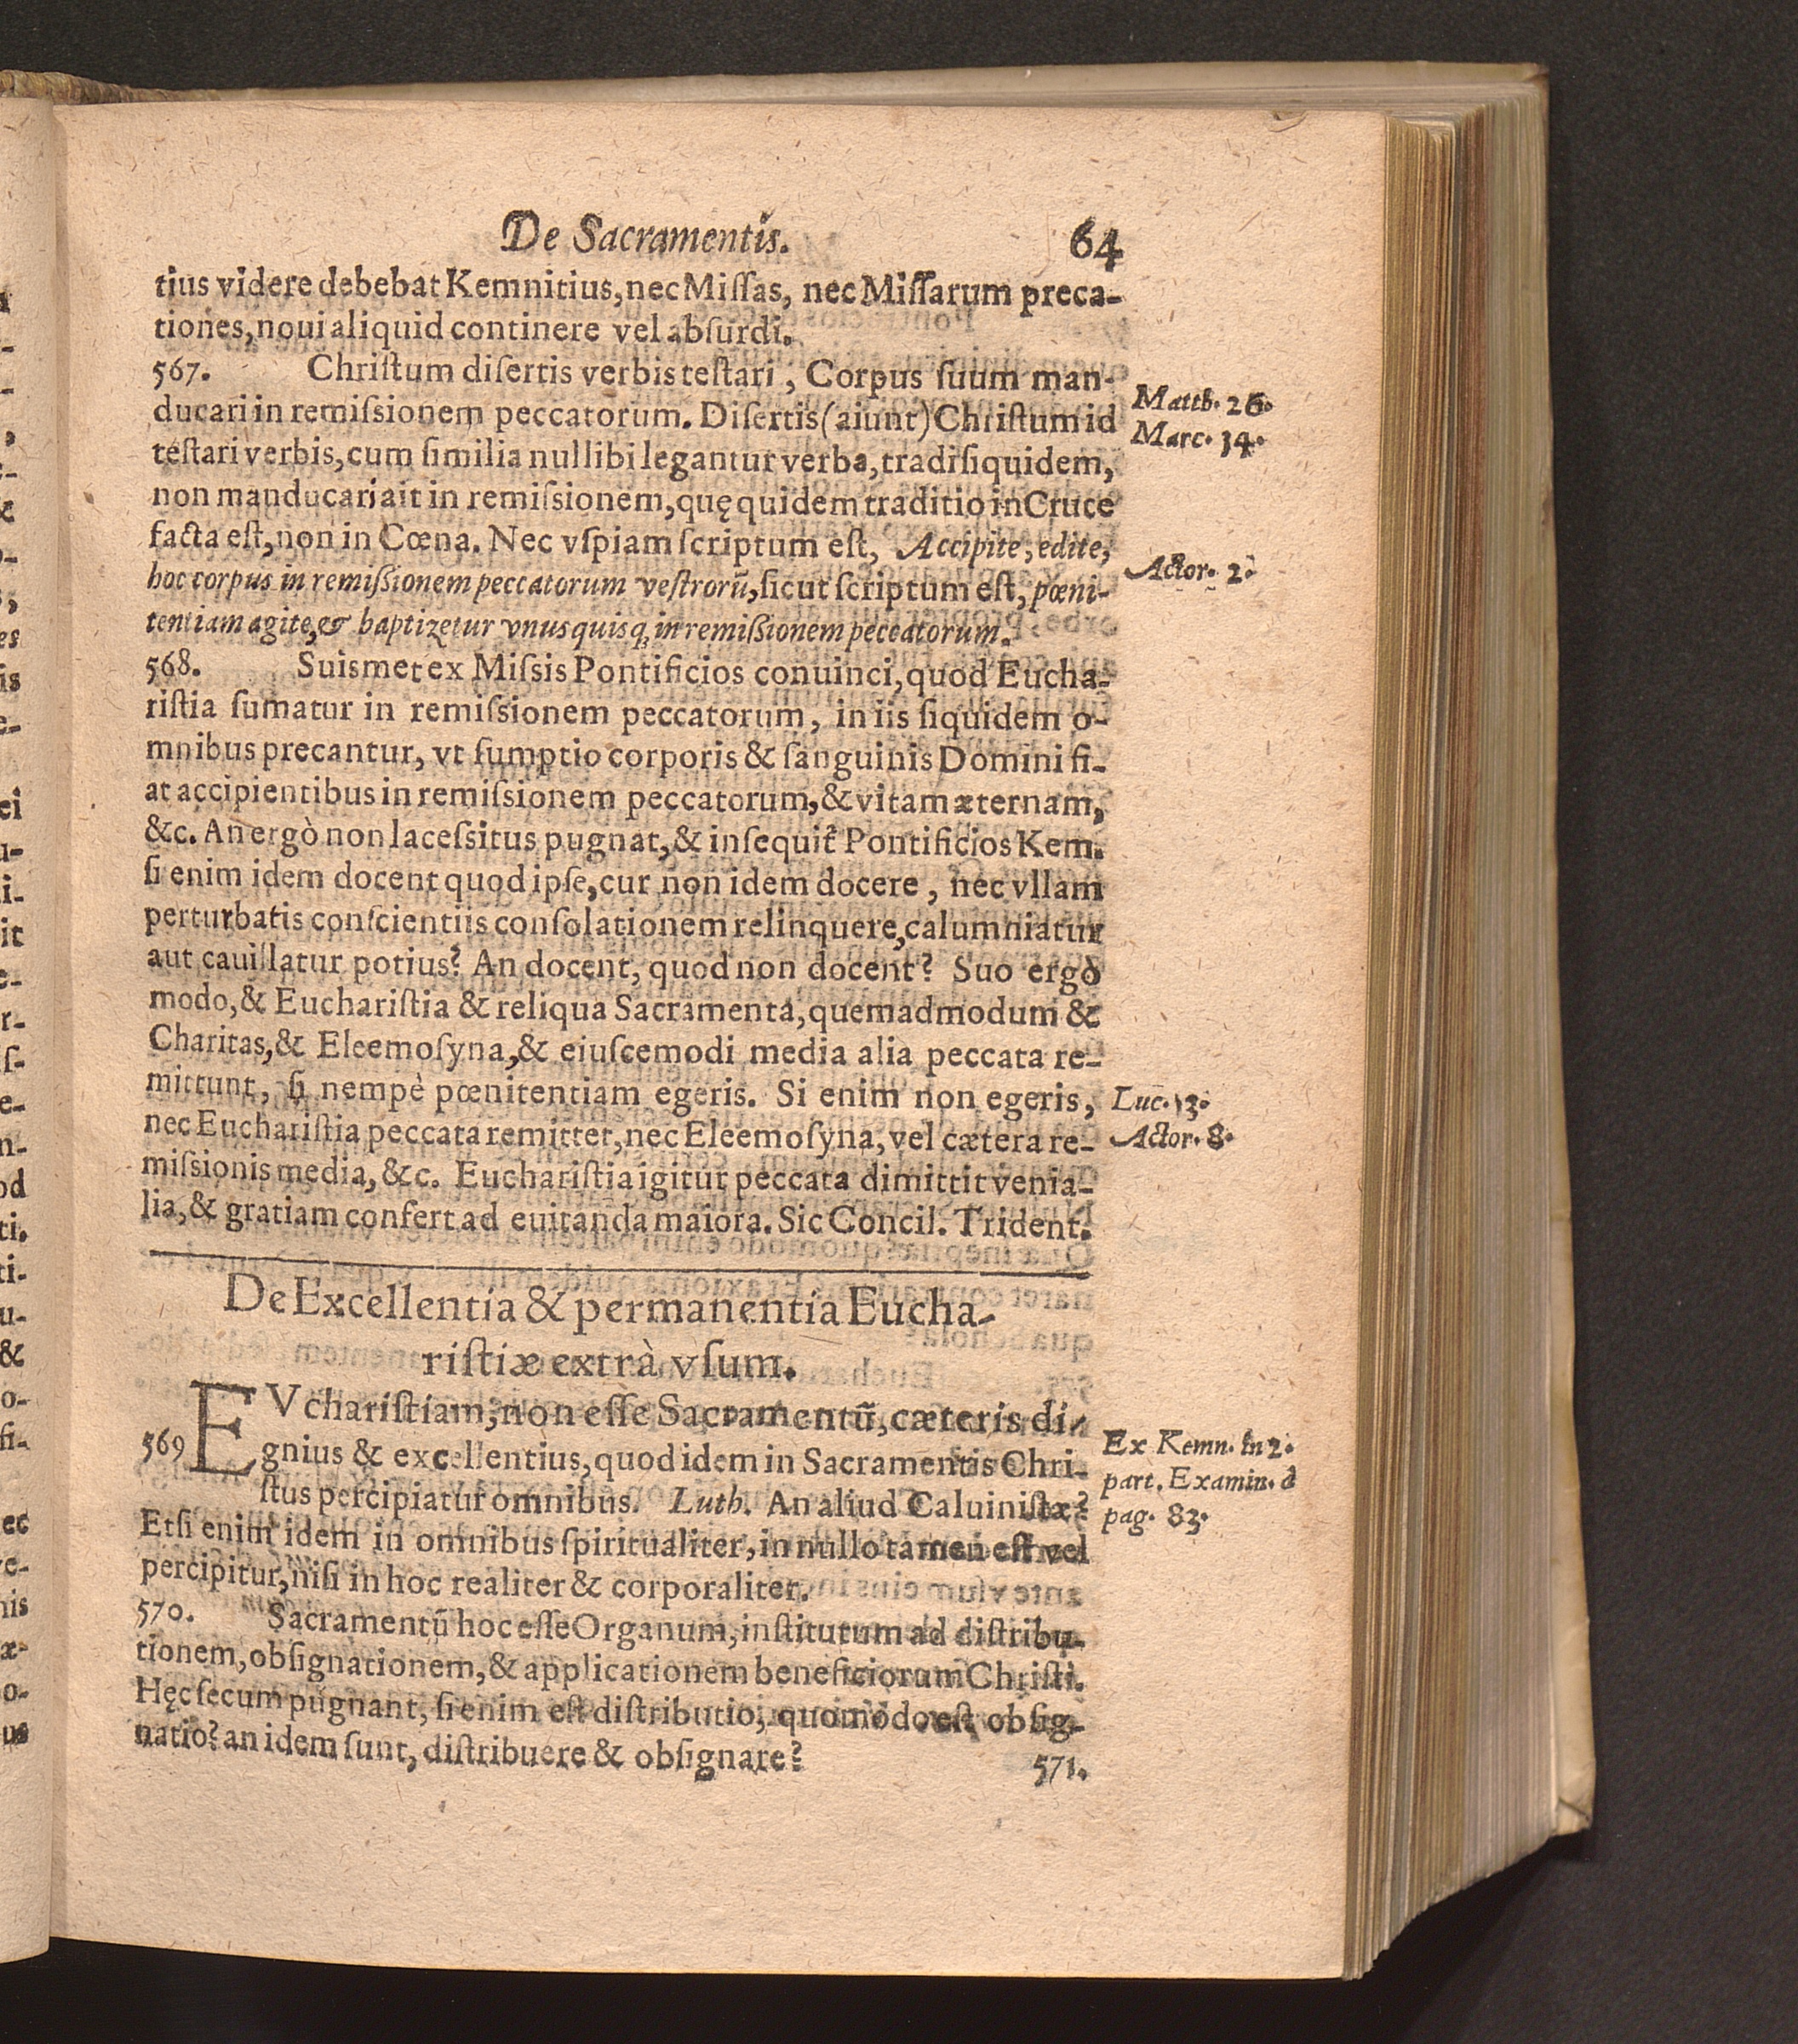 De Sacramentis. 64
tius videre debebat Kemnitius, nec Miſſas, nec Miſſarum preca-
tiones, noui aliquid continere vel abſurdi.
567. Chriſtum diſertis verbis teſtari, Corpus ſuum man-
ducari in remiſsionem peccatorum. Diſertis (aiunt) Chriſtum id
teſtari verbis, cum ſimilia nullibi legantur verba, tradi ſiquidem,
non manducari ait in remiſsionem, quę quidem traditio in Cruce
facta eſt, non in Cœna. Nec vſpiam ſcriptum eſt, Accipite, edite,
hoc corpus in remiſsionem peccatorum veſtrorū, ſicut ſcriptum eſt, pœni-
tentiam agite, & baptizetur vnusquisq; in remiſsionem peccatorum.
Matth. 26.
Marc. 14.
Actor. 2.
568. Suismet ex Miſsis Pontificios conuinci, quod Eucha-
riſtia ſumatur in remiſsionem peccatorum, in iis ſiquidem o-
mnibus precantur, vt ſumptio corporis & ſanguinis Domini fi-
at accipientibus in remiſsionem peccatorum, & vitam æternam,
&c. An ergò non laceſsitus pugnat, & inſequit᷑ Pontificios Kem.
ſi enim idem docent quod ipſe, cur non idem docere, nec vllam
perturbatis conſcientiis conſolationem relinquere, calumniatur
aut cauillatur potius? An docent, quod non docent? Suo ergò
modo, & Euchariſtia & reliqua Sacramenta, quemadmodum &
Charitas, & Eleemoſyna, & eiuſcemodi media alia peccata re-
mittunt, ſi nempè pœnitentiam egeris. Si enim non egeris,
nec Euchariſtia peccata remittet, nec Eleemoſyna, vel cætera re-
miſsionis media, &c. Euchariſtia igitur peccata dimittit venia-
lia, & gratiam confert ad euitanda maiora. Sic Concil. Trident.
Luc. 13.
Actor. 8.
De Excellentia & permanentia Eucha-
riſtiæ extrà vſum.
569 EVchariſtiam, non eſſe Sacramentū, cæteris di-
gnius & excellentius, quod idem in Sacramentis Chri-
ſtus percipiatur omnibus. Luth. An aliud Caluiniſtæ?
Etſi enim idem in omnibus ſpiritualiter, in nullo tamen eſt vel
percipitur, niſi in hoc realiter & corporaliter.
Ex Kemn. in 2.
part. Examin. à
pag. 83.
570. Sacramentū hoc eſſe Organum, inſtitutum ad diſtribu-
tionem, obſignationem, & applicationem beneficiorum Chriſti.
Hęc ſecum pugnant, ſi enim eſt diſtributio, quomodo eſt obſig-
natio? an idem ſunt, diſtribuere & obſignare?
571.